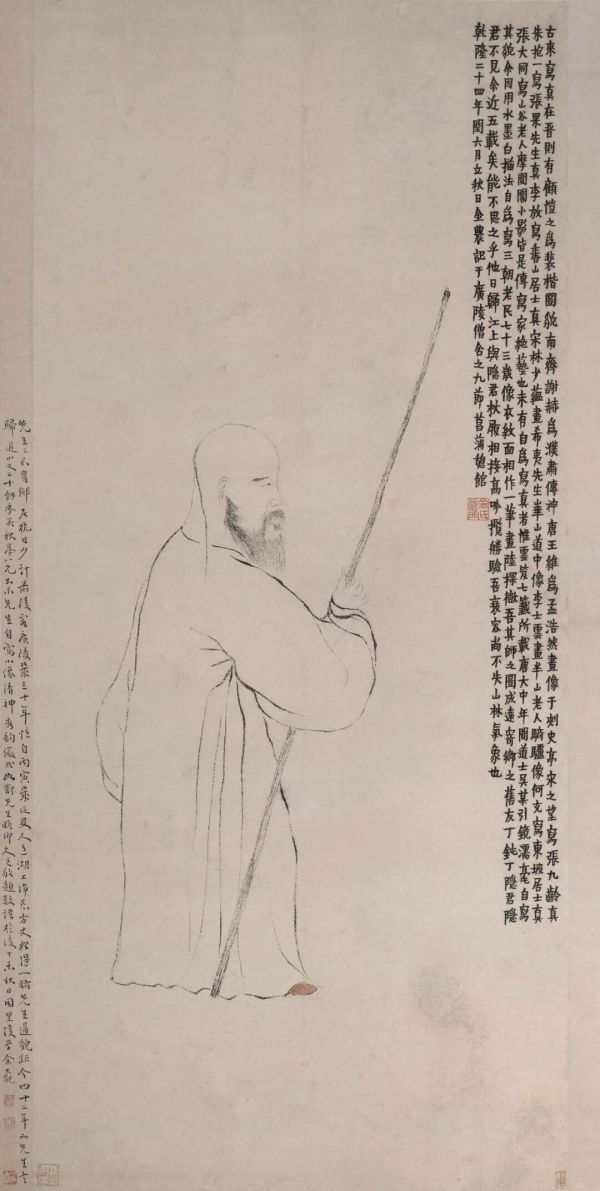 古來寫真在晉則有顧愷之為裴楷圖貌南齊謝赫為濮肅傳神唐王維為孟浩然畫像于刺史亭宋之望寫張九齡真
朱抱一寫張果先生真李放寫香山居士真宋林少蘊畫希夷先生華山道中像李士雲畫半山老人騎驢像何充寫東坡居士真
張大同寫山谷老人摩圍閣小影皆是傳寫家絕藝也未有自為寫真者惟雲笈七籤所載唐大中年間道士吳某引鏡濡毫自寫
其貌余因用水墨白描法自為寫三朝老民七十三歲像衣紋面相作一筆畫陸探微吾其師之圖成遠寄鄉之舊友丁鈍丁隱君隱
君不見余近五載矣能不思之乎他日歸江上與隱君杖履相接高吟攬勝驗吾衰容尚不失山林氣象也
乾隆二十四年閏六月立秋日金農記于廣陵僧舍之九節菖蒲憩館
先生吾鄉居杭日少計前後客廣陵幾三十年自丙寅湖上方丈得一瞻先生道貌距今四十二年而先生之
歸道山又二十餘年矣秋八兄出示先生自寫小像清神秀韻儼然如對先生敬題數語於後丁未秋日同里後學余大觀